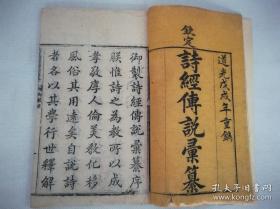 道光戊戌年重鐫
欽定
詩經傳說彙纂
御製詩經傳說彙纂序
朕惟詩之為教所以成
孝敬厚人倫美教化移
風俗其用遠矣自說詩
者各以其學行世釋解
孔夫子旧书网